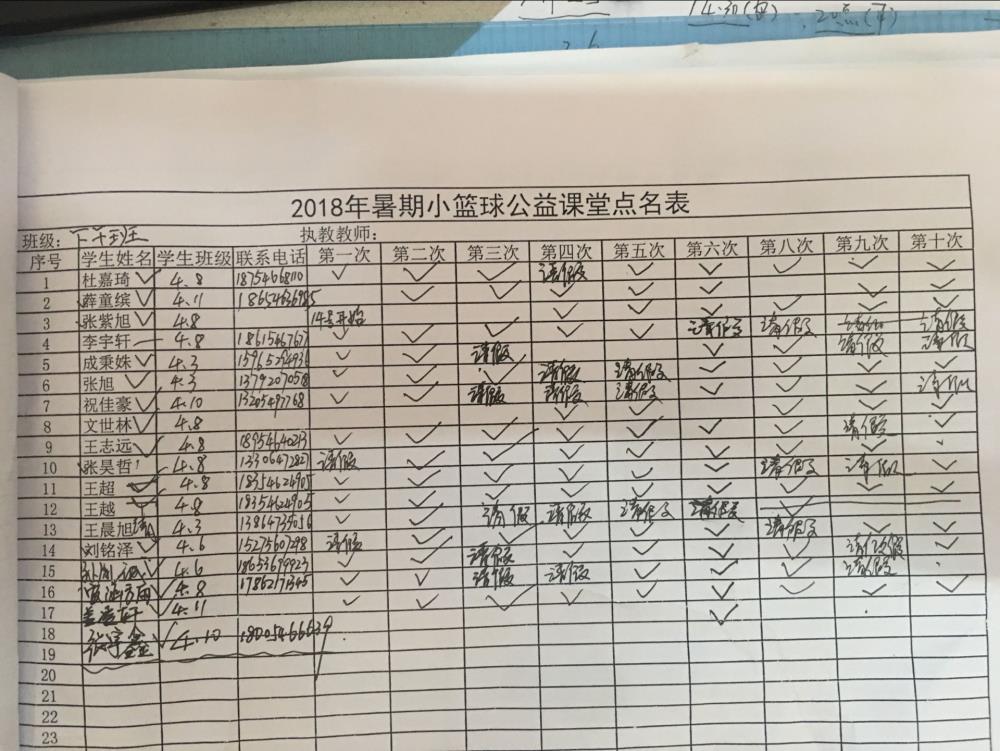 14:30(每) 20点(下)
2018年暑期小篮球公益课堂点名表
班级：下午班 执教教师：
序号 学生姓名 学生班级 联系电话 第一次 第二次 第三次 第四次 第五次 第六次 第八次 第九次 第十次
1 杜嘉琦✓ 4.8 18754668110 ✓ ✓ ✓ 请假 ✓ ✓ ✓ ✓ ✓
2 薛童缤✓ 4.11 ✓ ✓ ✓ ✓ ✓ ✓ ✓
3 张紫旭✓ 4.8 14号开始 ✓ ✓ ✓ ✓
4 李宇轩 4.8 ✓ ✓ ✓ ✓ ✓ 请假 请假 请假
5 成秉姝✓ 4.3 ✓ ✓ 请假 ✓ ✓ 请假
6 张旭✓ 4.3 13792070558 ✓ ✓ ✓ 请假 请假 ✓ ✓ ✓
7 祝佳豪✓ 4.10 13205497768 ✓ ✓ 请假 请假 请假 ✓ ✓ ✓
8 文世林✓ 4.8 ✓ ✓ ✓ ✓ 请假 ✓
9 王志远✓ 4.8 ✓ ✓ ✓ ✓ ✓ ✓ ✓ ✓
10 张昊哲 4.8 13306472827 请假 ✓ ✓ ✓ ✓ ✓ 请假 请假 ✓
11 王超 4.8 18354624905 ✓ ✓ ✓ ✓ ✓ ✓ ✓ ✓ ✓
12 王越 4.8 18354624905 ✓ ✓ 请假 请假 请假 请假 ✓
13 王晨旭 4.3 13864739056 ✓ ✓ ✓ ✓ 请假 ✓ ✓
14 刘铭泽✓ 4.6 15275607298 请假 ✓ 请假 ✓ ✓ ✓ ✓ 请假 ✓
15 4.6 18653679923 ✓ ✓ 请假 请假 ✓ ✓ ✓ 请假
16 4.8 17862171345 ✓ ✓ ✓ ✓ ✓ ✓ ✓ ✓
17 4.11 ✓ ✓ ✓ ✓ ✓ ✓
18 张宇鑫✓ 4.10
19
20
21
22
23